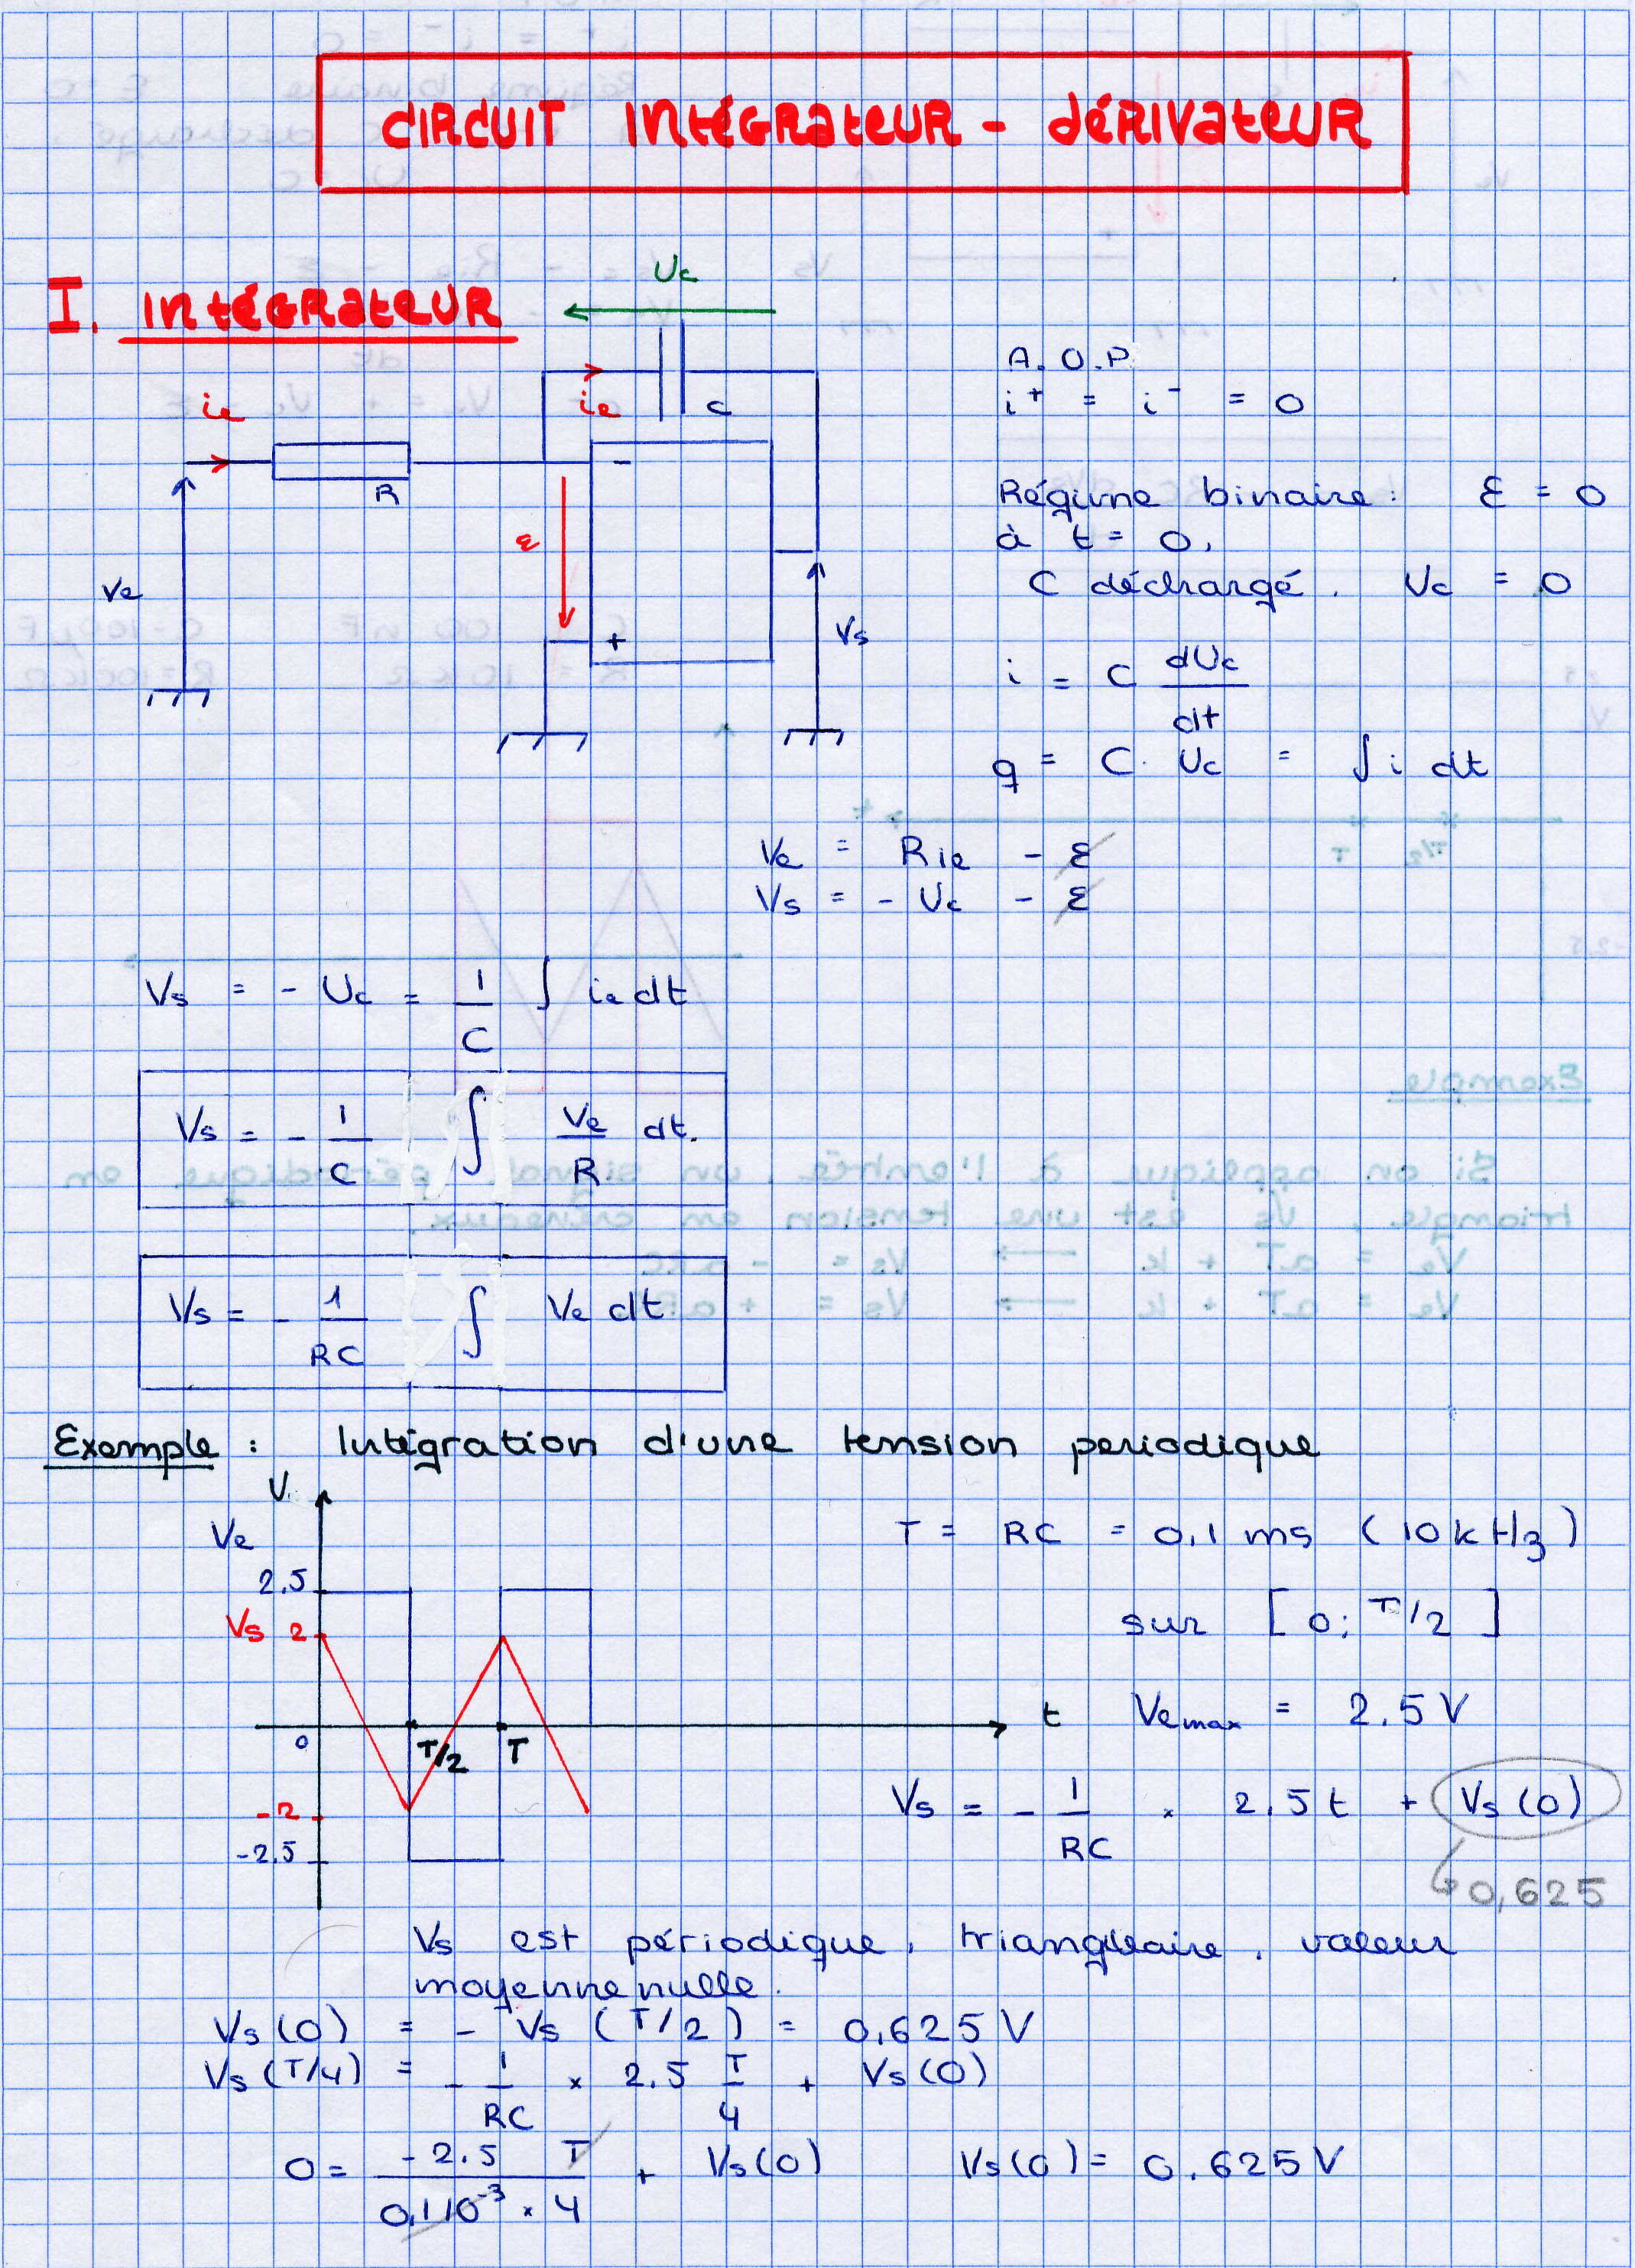 CIRCUIT INTÉGRATEUR - DÉRIVATEUR
I. INTÉGRATEUR
Uc
ie
ie
C
R
-
ε
+
Ve
Vs
A.O.P.
i+ = i- = 0
Régime binaire : ε = 0
à t = 0,
C déchargé. Uc = 0
i = C dUc/dt
q = C. Uc = ∫ i dt
Ve = Rie - ε
Vs = - Uc - ε
Vs = - Uc = 1/C ∫ ie dt
Vs = - 1/C ∫ Ve/R dt.
Vs = - 1/RC ∫ Ve dt
Exemple : Intégration d'une tension periodique
V
Ve
2.5
Vs 2
0
T/2 T
t
-2
-2.5
T = RC = 0,1 ms (10 kHz)
sur [0; T/2]
Vemax = 2.5 V
Vs = - 1/RC × 2.5 t + Vs(0)
0,625
Vs est périodique, triangulaire, valeur
moyenne nulle.
Vs(0) = - Vs (T/2) = 0,625 V
Vs(T/4) = - 1/RC × 2.5 T/4 + Vs(0)
0 = - 2.5 T / 0,1 10⁻³ × 4 + Vs(0) Vs(0) = 0.625 V